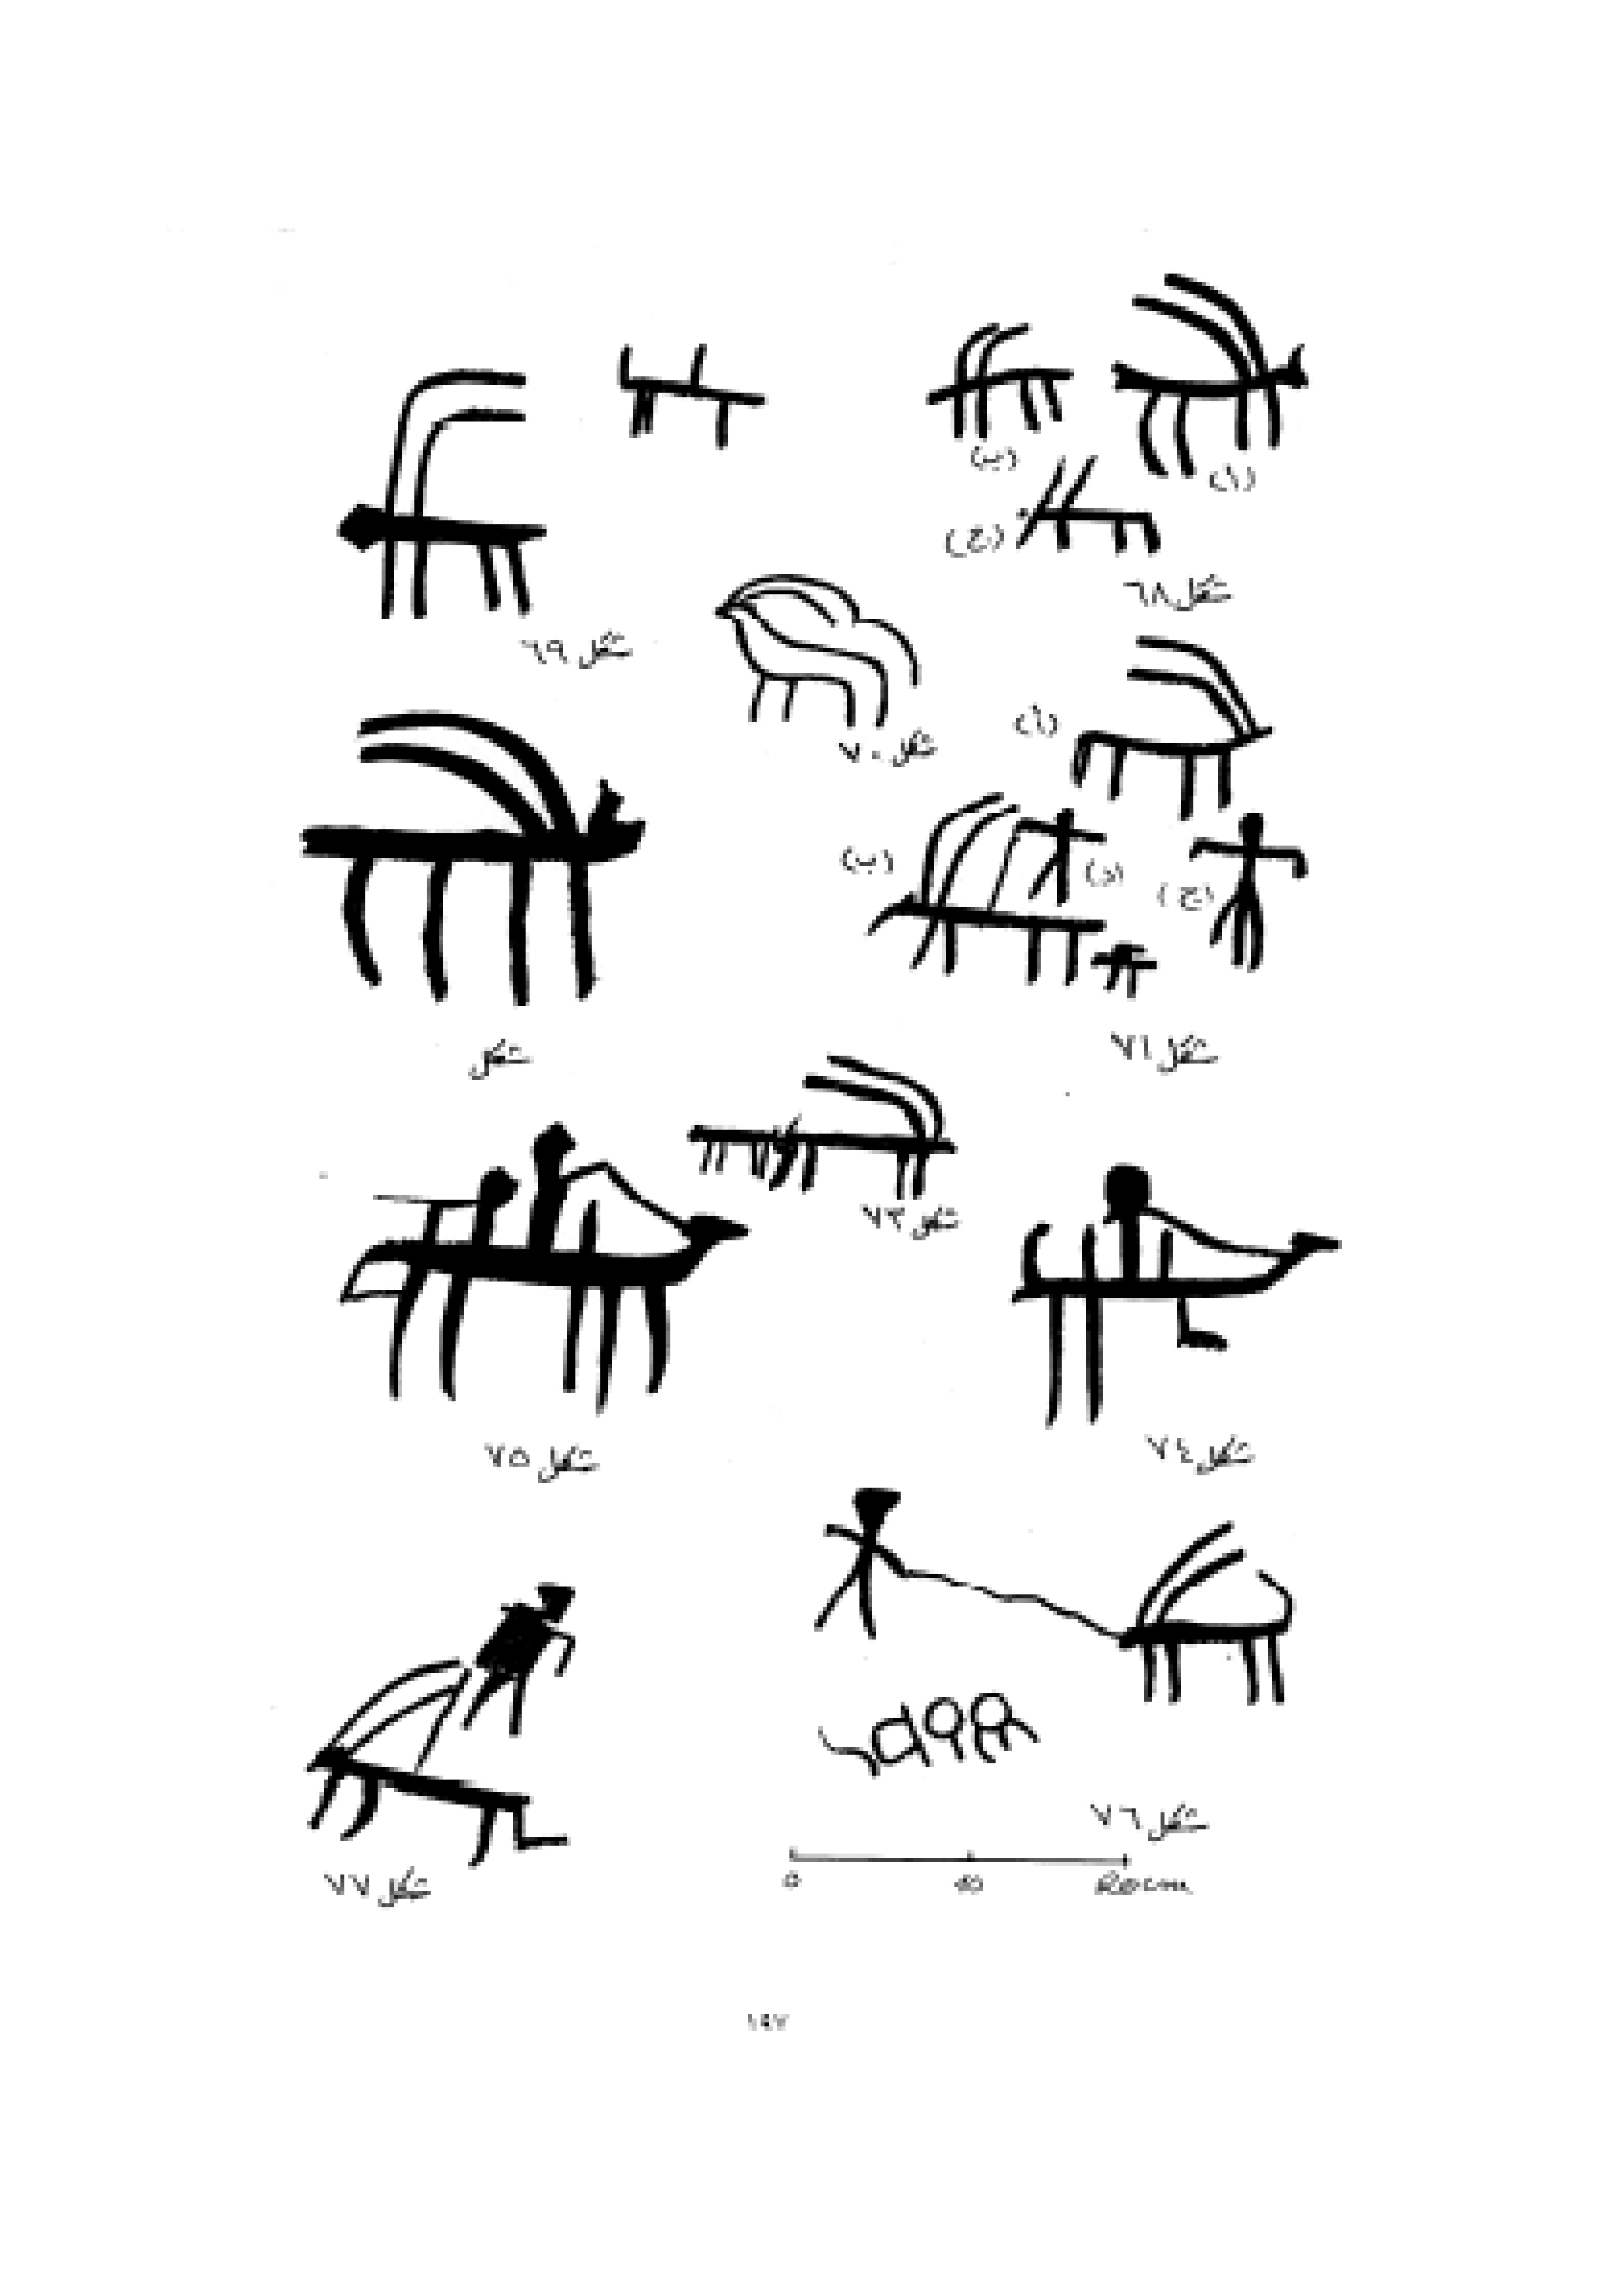 (ب)
(أ)
(ج)
شكل ٦٨
شكل ٦٩
شكل ٧٠
(أ)
(ب)
(د)
(ج)
شكل ٧١
شكل
شكل ٧٣
شكل ٧٤
شكل ٧٥
شكل ٧٦
شكل ٧٧
0 10 20cm